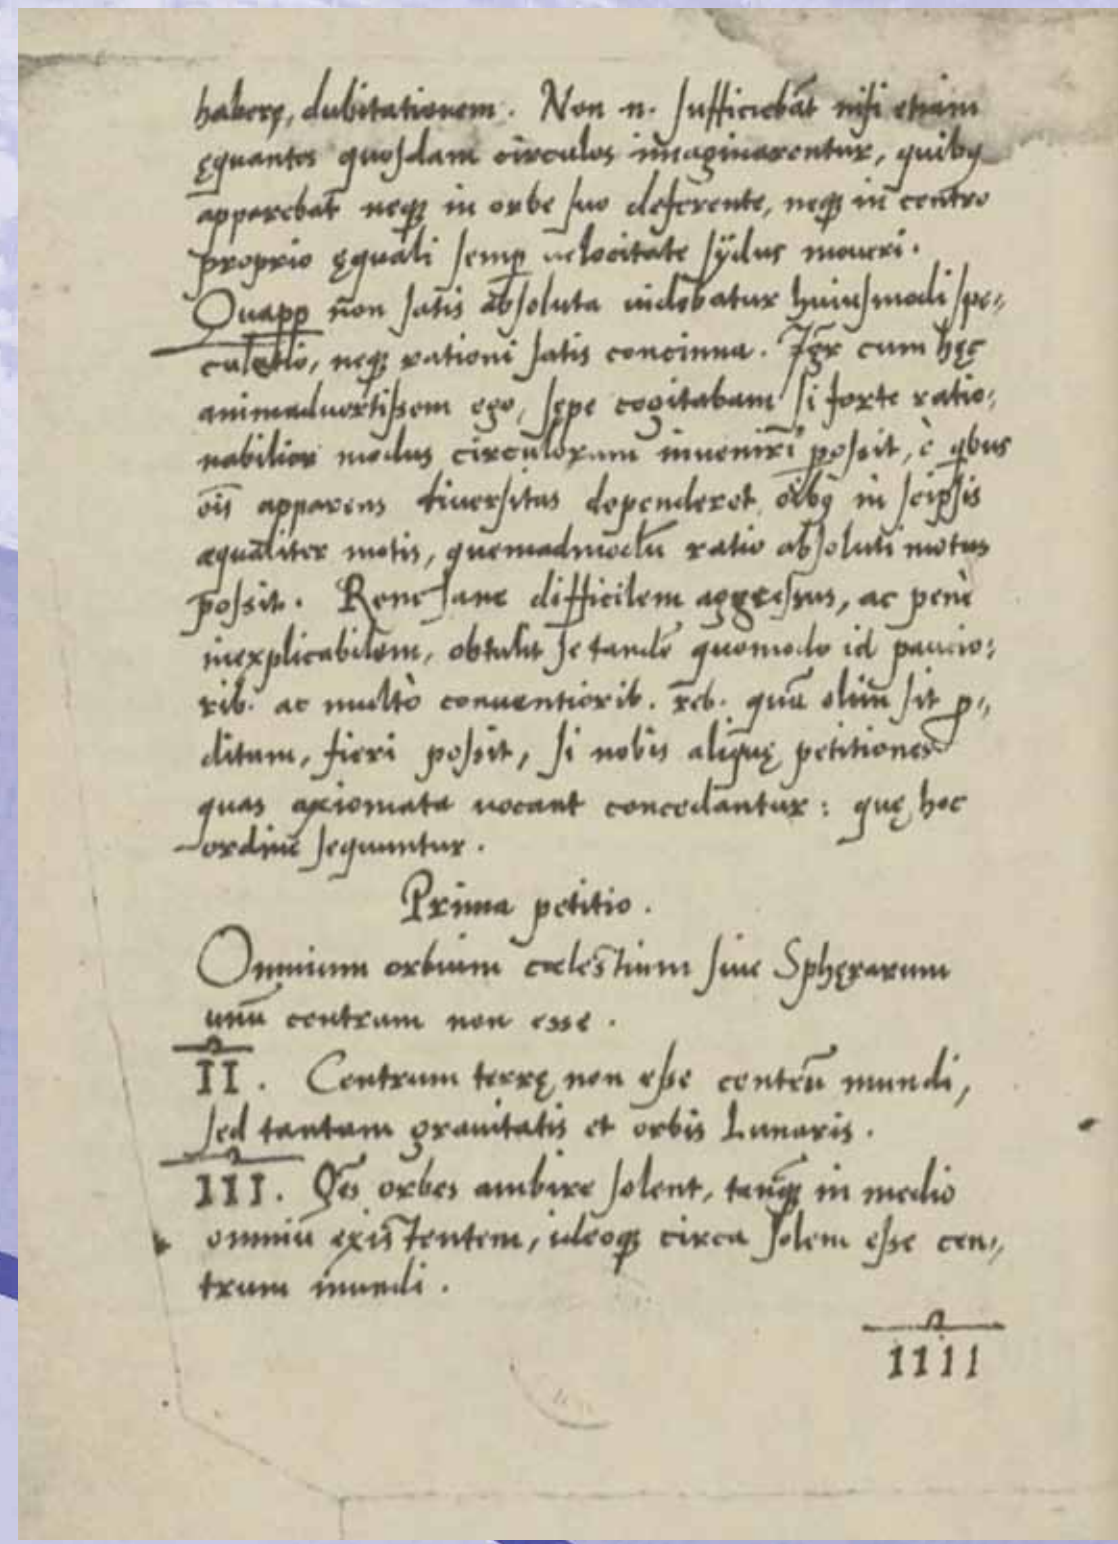 haberę, dubitationem. Non n. sufficiebāt nisi etiam
ęquantes quosdam circulos imaginarentur, quibq
apparebat neqȝ in orbe suo deferente, neqȝ in centro
proprio ęquali semp velocitate sÿdus moueri.
Quapp nōn satis absoluta uidebatur huiusmodi spe-
culatio, neqȝ rationi satis concinna. Igr̄ cum hęc
animaduertissem ego, sępe cogitabam si forte ratio-
nabilior modus circulorum inueniri possit, è qbus
oīs apparens diuersitas dependeret, oībq in seipsis
æqualiter motis, quemadmodū ratio absoluti motus
possit. Rem sane difficilem aggressus, ac penè
inexplicabilem, obtulit se tandē quomodo id paucio-
rib. ac multò conuentiorib. reb. quā olim sit p-
ditum, fieri possit, si nobis aliquę petitiones
quas axiomata uocant concedantur: quę hoc
ordine sequuntur.
Prima petitio.
Omnium orbium cælestium siue Sphęrarum
unū centrum non esse.
II. Centrum terrę non esse centrū mundi,
sed tantum grauitatis et orbis Lunaris.
III. Oēs orbes ambire solem, tanqȝ in medio
omniū existentem, ideoqȝ circa solem esse cen-
trum mundi.
IIII